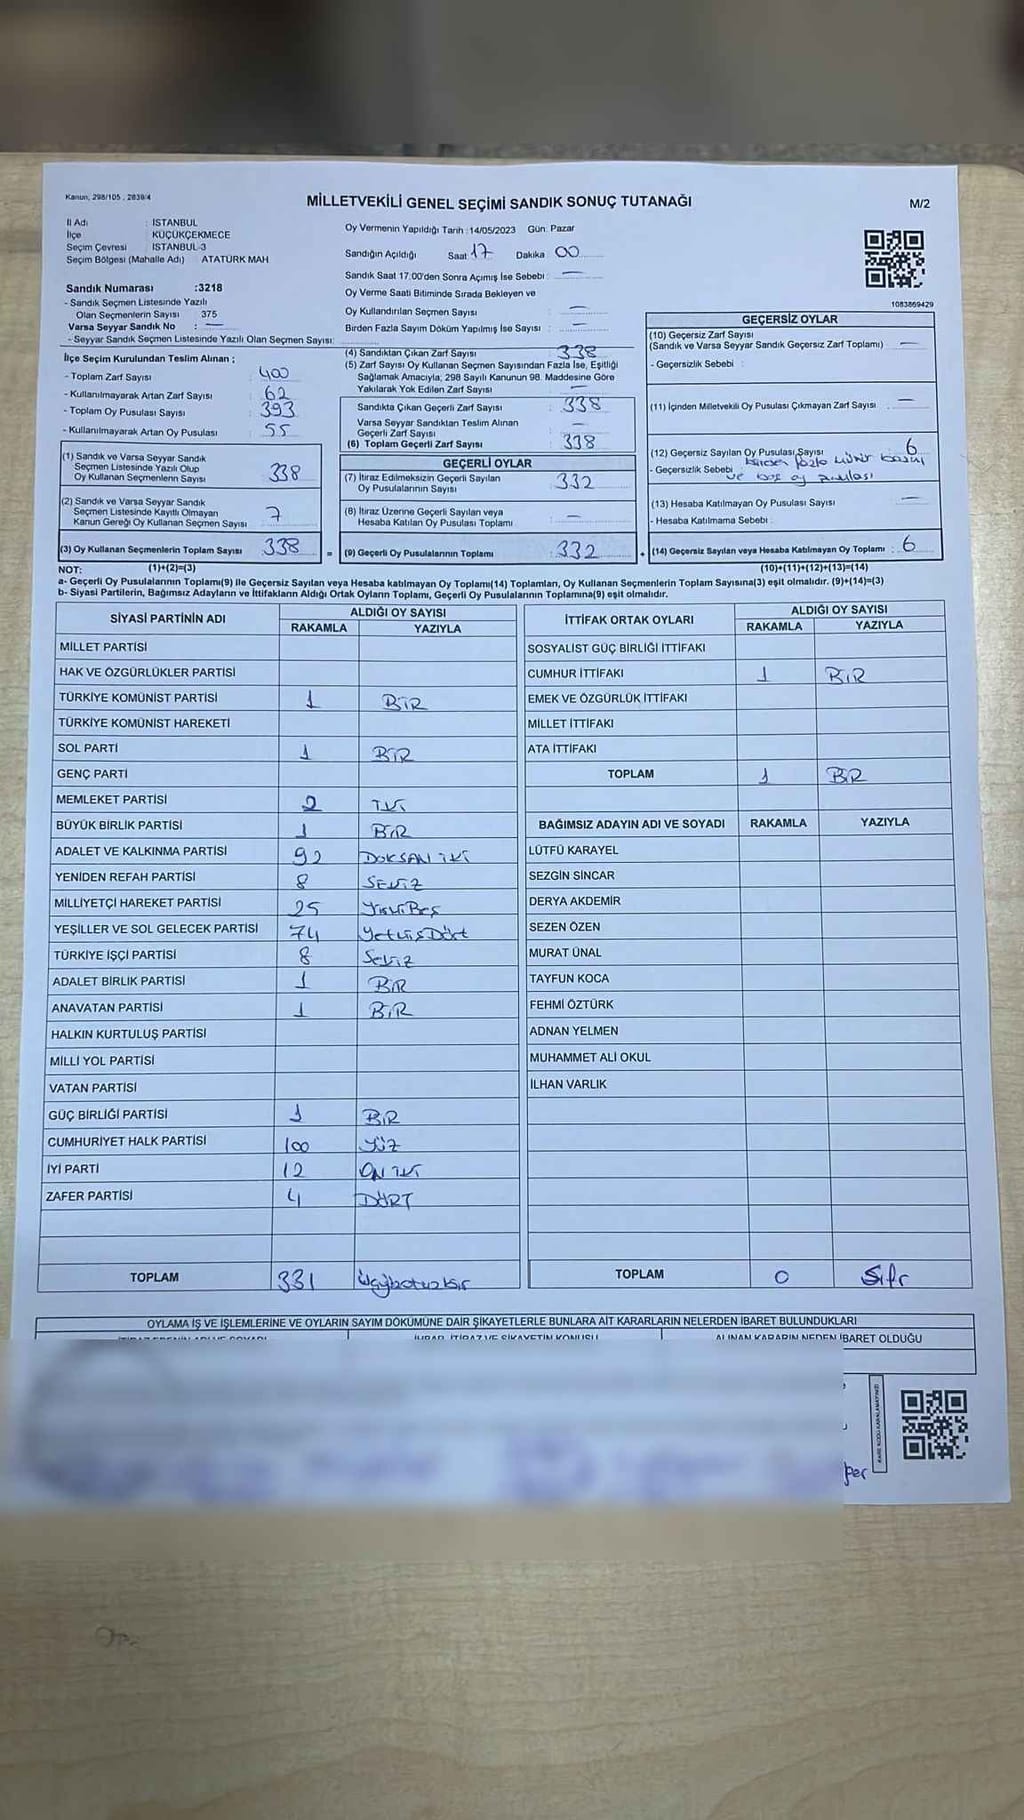 Kanun, 298/105 , 2839/4
MİLLETVEKİLİ GENEL SEÇİMİ SANDIK SONUÇ TUTANAĞI
M/2
İl Adı : İSTANBUL
İlçe : KÜÇÜKÇEKMECE
Seçim Çevresi : İSTANBUL-3
Seçim Bölgesi (Mahalle Adı) : ATATÜRK MAH
Oy Vermenin Yapıldığı Tarih :14/05/2023 Gün: Pazar
Sandığın Açıldığı Saat 17 Dakika 00
Sandık Saat 17.00'den Sonra Açımış İse Sebebi : —
Oy Verme Saati Bitiminde Sırada Bekleyen ve
Oy Kullandırılan Seçmen Sayısı : —
Birden Fazla Sayım Döküm Yapılmış İse Sayısı : —
1083869429
Sandık Numarası :3218
- Sandık Seçmen Listesinde Yazılı
Olan Seçmenlerin Sayısı 375
Varsa Seyyar Sandık No : —
- Seyyar Sandık Seçmen Listesinde Yazılı Olan Seçmen Sayısı:
İlçe Seçim Kurulundan Teslim Alınan ;
- Toplam Zarf Sayısı : 400
- Kullanılmayarak Artan Zarf Sayısı : 62
- Toplam Oy Pusulası Sayısı : 393
- Kullanılmayarak Artan Oy Pusulası : 55
(1) Sandık ve Varsa Seyyar Sandık
Seçmen Listesinde Yazılı Olup
Oy Kullanan Seçmenlerin Sayısı : 338
(2) Sandık ve Varsa Seyyar Sandık
Seçmen Listesinde Kayıtlı Olmayan
Kanun Gereği Oy Kullanan Seçmen Sayısı : 7
(3) Oy Kullanan Seçmenlerin Toplam Sayısı : 338
(4) Sandıktan Çıkan Zarf Sayısı : 338
(5) Zarf Sayısı Oy Kullanan Seçmen Sayısından Fazla İse, Eşitliği
Sağlamak Amacıyla; 298 Sayılı Kanunun 98. Maddesine Göre
Yakılarak Yok Edilen Zarf Sayısı : —
Sandıkta Çıkan Geçerli Zarf Sayısı : 338
Varsa Seyyar Sandıktan Teslim Alınan
Geçerli Zarf Sayısı : —
(6) Toplam Geçerli Zarf Sayısı : 338
GEÇERLİ OYLAR
(7) İtiraz Edilmeksizin Geçerli Sayılan
Oy Pusulalarının Sayısı : 332
(8) İtiraz Üzerine Geçerli Sayılan veya
Hesaba Katılan Oy Pusulası Toplamı : —
= (9) Geçerli Oy Pusulalarının Toplamı : 332
GEÇERSİZ OYLAR
(10) Geçersiz Zarf Sayısı
(Sandık ve Varsa Seyyar Sandık Geçersiz Zarf Toplamı) : —
- Geçersizlik Sebebi :
(11) İçinden Milletvekili Oy Pusulası Çıkmayan Zarf Sayısı : —
(12) Geçersiz Sayılan Oy Pusulası Sayısı : 6
- Geçersizlik Sebebi : birden fazla mühür basımı
ve boş oy pusulası
(13) Hesaba Katılmayan Oy Pusulası Sayısı : —
- Hesaba Katılmama Sebebi :
+ (14) Geçersiz Sayılan veya Hesaba Katılmayan Oy Toplamı : 6
NOT: (1)+(2)=(3) (10)+(11)+(12)+(13)=(14)
a- Geçerli Oy Pusulalarının Toplamı(9) ile Geçersiz Sayılan veya Hesaba katılmayan Oy Toplamı(14) Toplamları, Oy Kullanan Seçmenlerin Toplam Sayısına(3) eşit olmalıdır. (9)+(14)=(3)
b- Siyasi Partilerin, Bağımsız Adayların ve İttifakların Aldığı Ortak Oyların Toplamı, Geçerli Oy Pusulalarının Toplamına(9) eşit olmalıdır.
SİYASİ PARTİNİN ADI ALDIĞI OY SAYISI
RAKAMLA YAZIYLA
MİLLET PARTİSİ
HAK VE ÖZGÜRLÜKLER PARTİSİ
TÜRKİYE KOMÜNİST PARTİSİ 1 BİR
TÜRKİYE KOMÜNİST HAREKETİ
SOL PARTİ 1 BİR
GENÇ PARTİ
MEMLEKET PARTİSİ 2 İKİ
BÜYÜK BİRLİK PARTİSİ 1 BİR
ADALET VE KALKINMA PARTİSİ 92 DOKSAN İKİ
YENİDEN REFAH PARTİSİ 8 SEKİZ
MİLLİYETÇİ HAREKET PARTİSİ 25 YirmiBeş
YEŞİLLER VE SOL GELECEK PARTİSİ 74 YetmişDört
TÜRKİYE İŞÇİ PARTİSİ 8 Sekiz
ADALET BİRLİK PARTİSİ 1 BİR
ANAVATAN PARTİSİ 1 BİR
HALKIN KURTULUŞ PARTİSİ
MİLLİ YOL PARTİSİ
VATAN PARTİSİ
GÜÇ BİRLİĞİ PARTİSİ 1 BİR
CUMHURİYET HALK PARTİSİ 100 YÜZ
İYİ PARTİ 12 ON İKİ
ZAFER PARTİSİ 4 DÖRT
TOPLAM 331 Üçyüzotuzbir
İTTİFAK ORTAK OYLARI ALDIĞI OY SAYISI
RAKAMLA YAZIYLA
SOSYALİST GÜÇ BİRLİĞİ İTTİFAKI
CUMHUR İTTİFAKI 1 BİR
EMEK VE ÖZGÜRLÜK İTTİFAKI
MİLLET İTTİFAKI
ATA İTTİFAKI
TOPLAM 1 BİR
BAĞIMSIZ ADAYIN ADI VE SOYADI RAKAMLA YAZIYLA
LÜTFÜ KARAYEL
SEZGİN SİNCAR
DERYA AKDEMİR
SEZEN ÖZEN
MURAT ÜNAL
TAYFUN KOCA
FEHMİ ÖZTÜRK
ADNAN YELMEN
MUHAMMET ALİ OKUL
İLHAN VARLIK
TOPLAM 0 Sıfır
OYLAMA İŞ VE İŞLEMLERİNE VE OYLARIN SAYIM DÖKÜMÜNE DAİR ŞİKAYETLERLE BUNLARA AİT KARARLARIN NELERDEN İBARET BULUNDUKLARI
İTİRAZ EDENİN ADI VE SOYADI İHBAR, İTİRAZ VE ŞİKAYETİN KONUSU ALINAN KARARIN NEDEN İBARET OLDUĞU